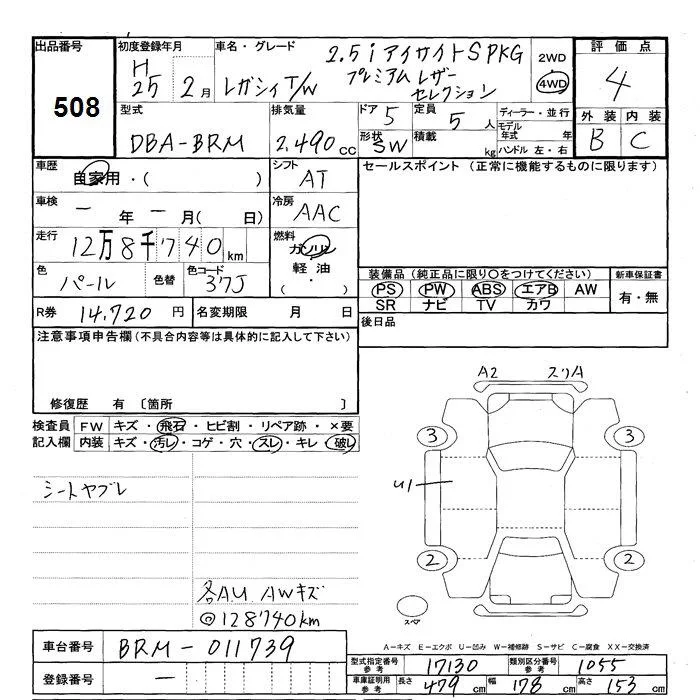 出品番号
508
初度登録年月
H
25 2月
車名・グレード
2.5i アイサイトSPKG
レガシィT/W プレミアムレザー
セレクション
2WD
4WD
評価点
4
外装 内装
B C
型式
DBA-BRM
排気量
2.490cc
ドア 5
形状 SW
定員 5人
積載 kg
ディーラー・並行
モデル年式 年
ハンドル 左・右
車歴
自家用・( )
シフト
AT
車検
ー年ー月( 日)
冷房
AAC
走行
12万8千740km
燃料
ガソリン
軽油
( ・ )
色
パール
色替
色コード
37J
R券 14,720円
名変期限 月 日
セールスポイント (正常に機能するものに限ります)
装備品 (純正品に限り○をつけてください)
PS PW ABS エアB AW
SR ナビ TV カワ
新車保証書
有・無
後日品
注意事項申告欄(不具合内容等は具体的に記入して下さい)
修復歴 有 〔箇所 〕
検査員記入欄
FW キズ・飛石・ヒビ割・リペア跡・×要
内装 キズ・汚レ・コゲ・穴・スレ・キレ・破レ
シートヤブレ
各AU AWキズ
@128740km
A2 スリA
3 3
U1
2 2
スペア
A-キズ E-エクボ U-凹み W-補修跡 S-サビ C-腐食 XX-交換済
車台番号 BRM-011739
登録番号 ー
型式指定番号参考 17130
類別区分番号参考 1055
車庫証明用参考 長さ 479cm 幅 178cm 高さ 153cm